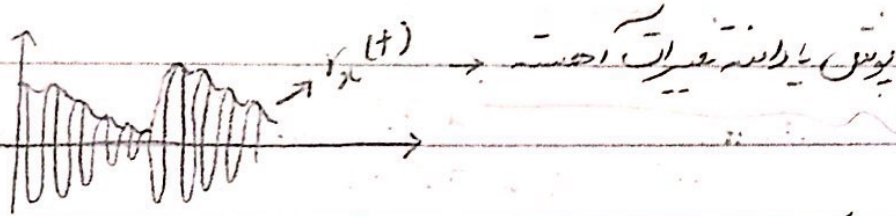 r_x(t) → پوش یا دامنه تغییرات آهسته